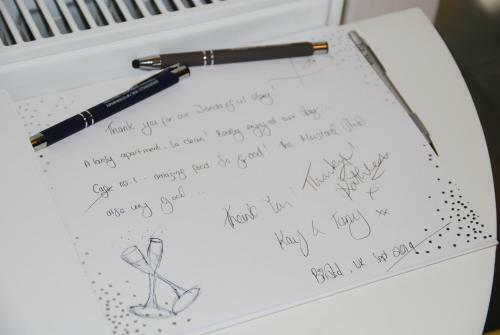 Thank you for our wonderful stay!
A lovely apartment. So clean! Really enjoyed our stay...
Cage no.1.. amazing food so good! The Mustard Pad
also very good...
Thank You!
Thankyou! Kathleen x
Kay & Tony xx
Bristol, UK Sept 2019